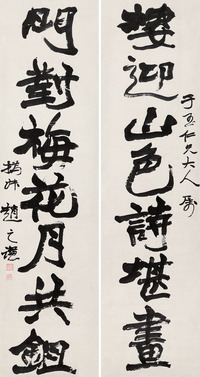 仁兄大人屬
樓迎山色詩堪畫
門對梅花月共鉏
撝叔趙之謙